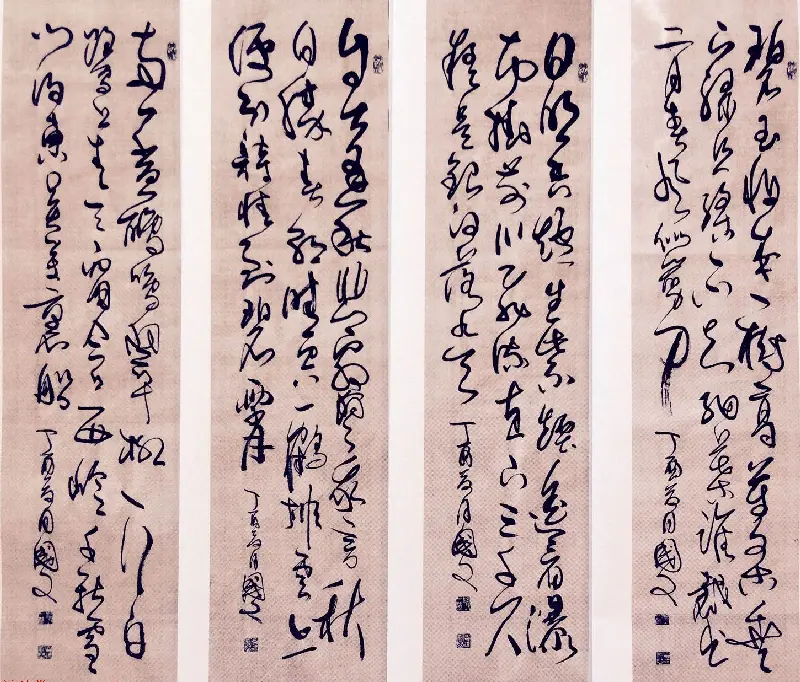 碧玉妝成一樹高萬條垂
下綠絲絛不知細葉誰裁出
二月春風似剪刀
丁酉 月國文
日照香爐生紫煙遙看瀑
布掛前川飛流直下三千尺
疑是銀河落九天
丁酉 月國文
自古逢秋悲寂寥我言秋
日勝春朝晴空一鶴排雲上
便引詩情到碧霄
丁酉 月國文
兩个黃鸝鳴翠柳一行白
鷺上青天窗含西嶺千秋雪
門泊東吳萬里船
丁酉 月國文